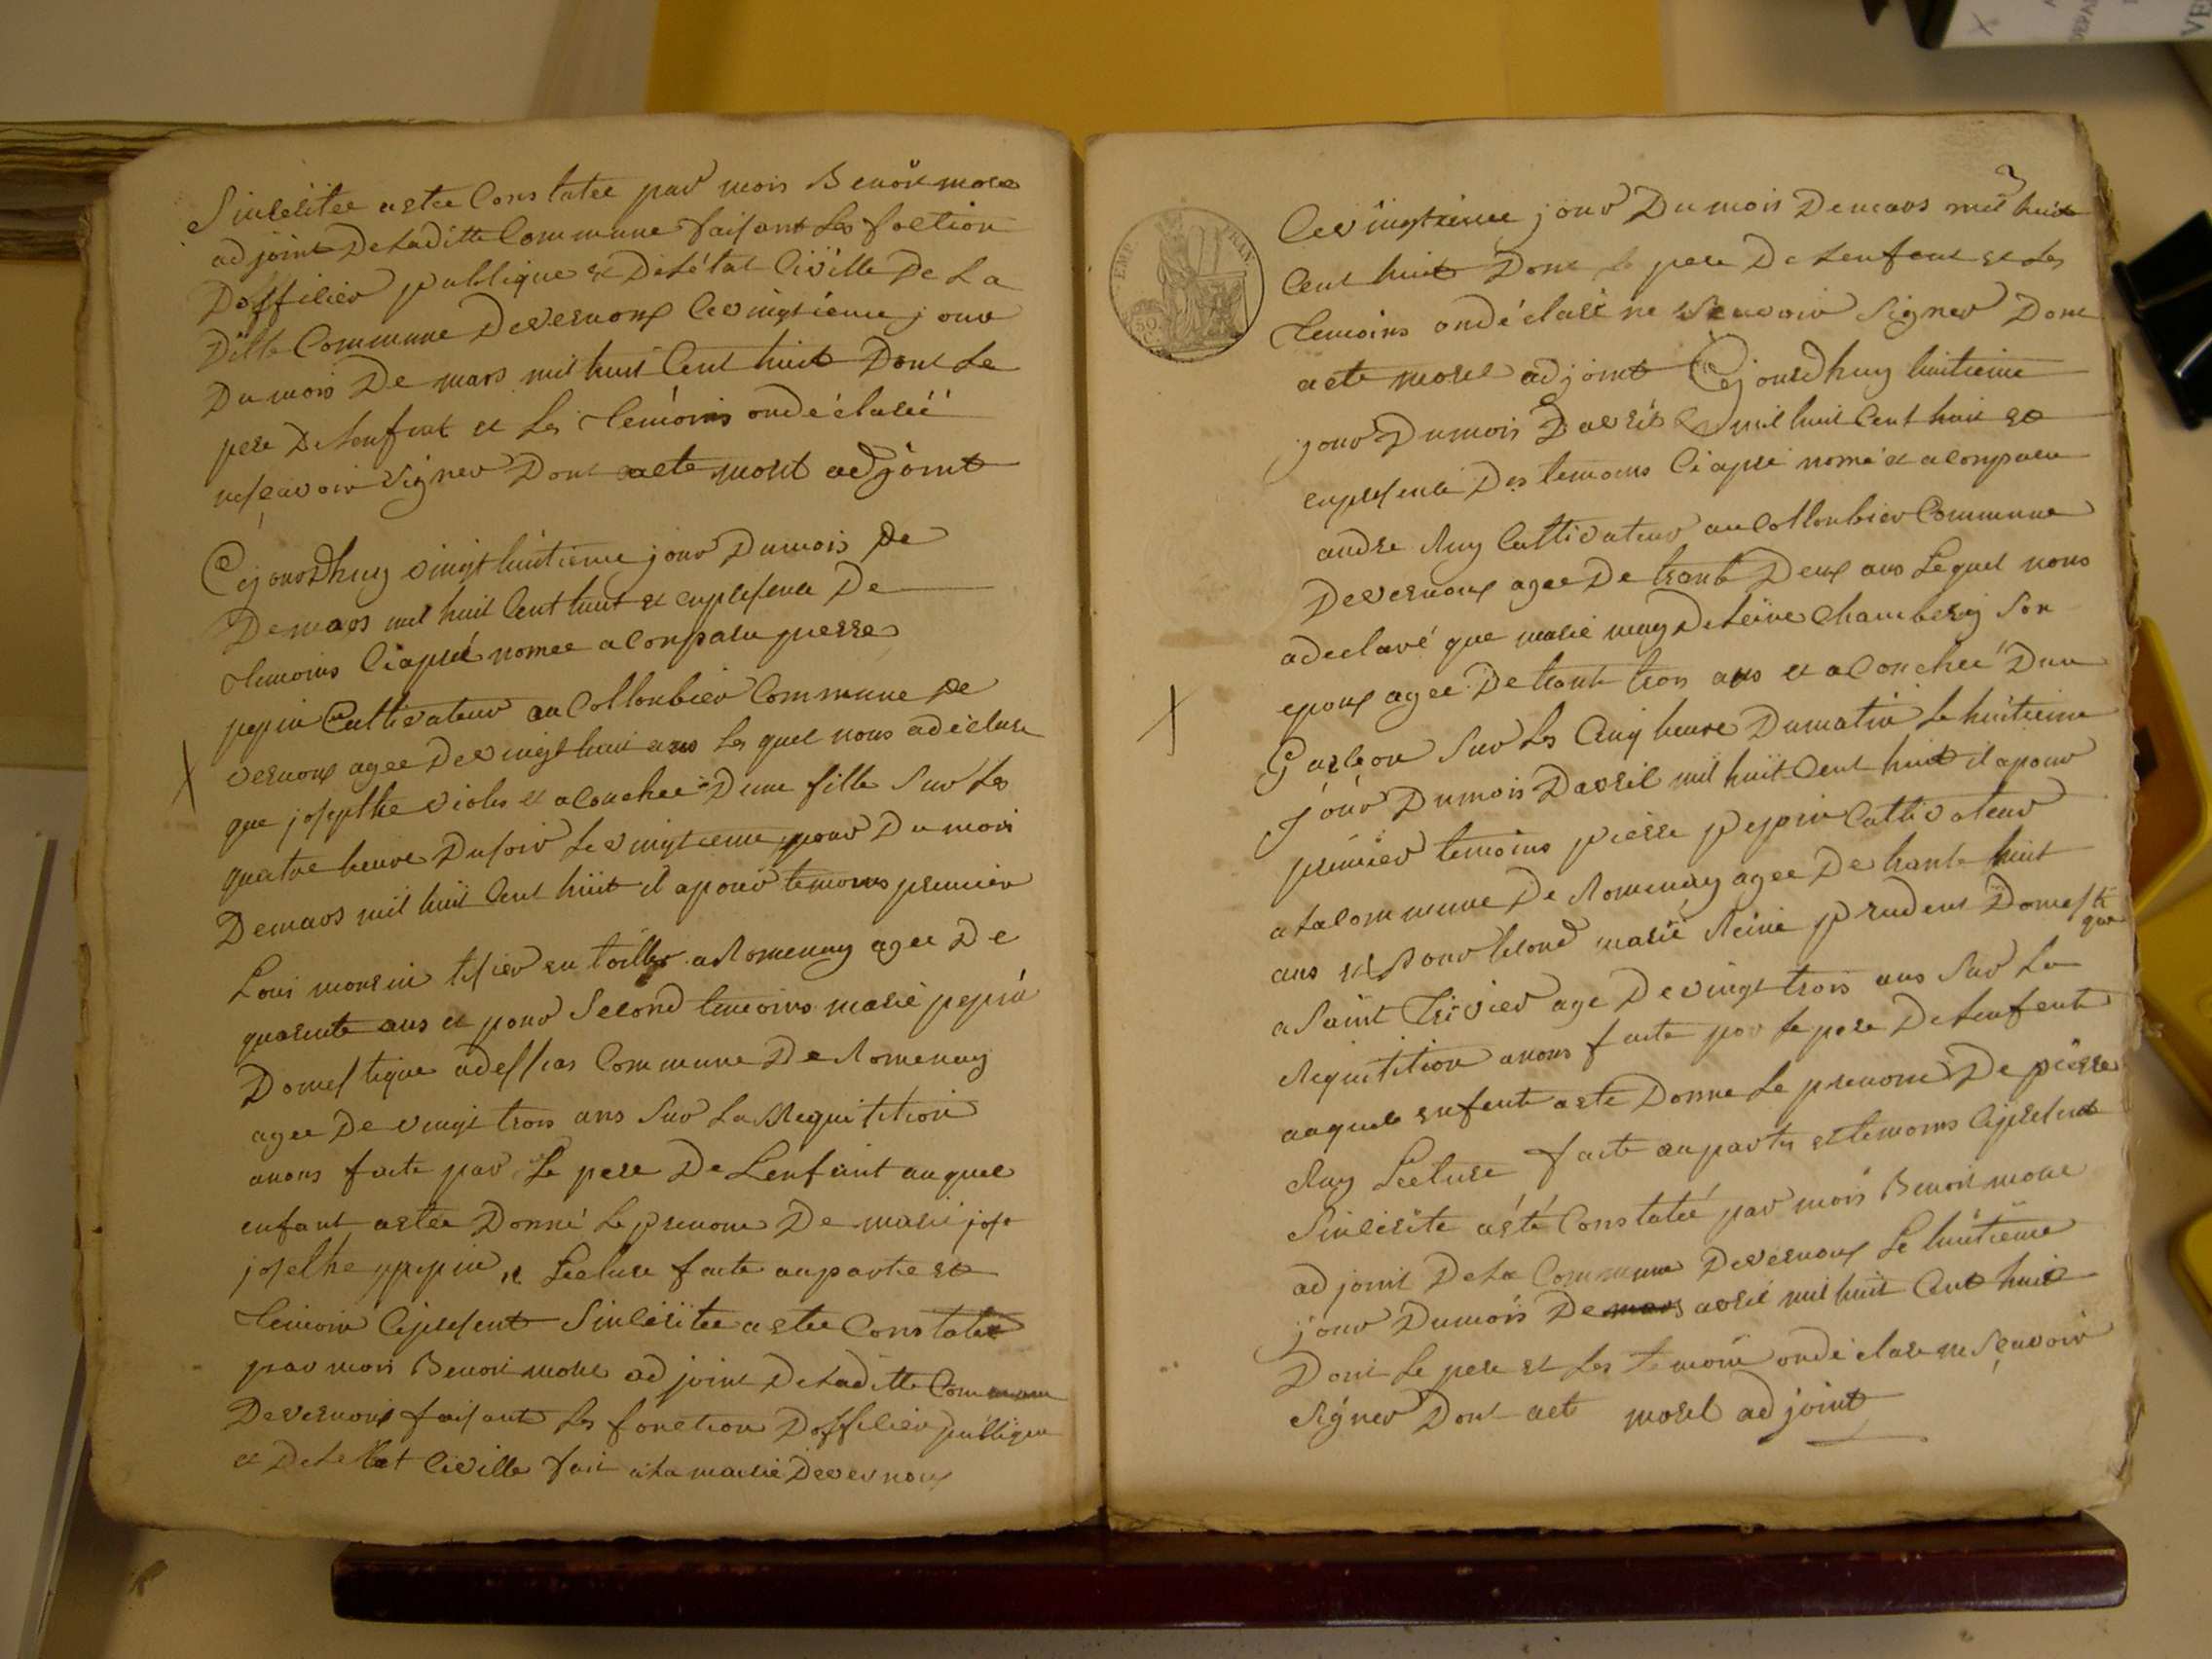 Sincéritée astée Constatée par mois Benoit morel
adjoint De Laditte Commune faisant Les foction
Doffilier publique et De Létat Civille De La
Ditte Commune De vernoux Ce vingtiéme jour
Du mois De mars mil huit Cent huit Dont Le
pere De Lenfant et Les temoins ondéclarée
ne sçavoir Signer Dont acte morel adjoint
Cejourdhuy vingt huitieme jour Dumois De
De mars mil huit Cent huit et en presence De
temoins Ciaprée nomee a Conparu pierre
pepin Cultivateur au Collonbier Commune De
vernoux agee De vingt huit ans Les quel nous adéclare
que josepthe violet et acouchee Dune fille Sur Les
quatre heure Dusoir Le vingtieme jour Du mois
De mars mil huit Cent huit il a pour temoins premier
Loui monsin tisier en toille a Romenay agee De
quarente ans et pour Second temoins marie pepin
Domestique a Commune De Romenay
agee De vingt trois ans Sur La Requitition
anous faite par Le pere De Lenfant auquel
enfant astée Donné Le prenom De marie jose
joselhe pepin Lecture faite au partie et
temoin Cipresent Sincéritée astée Constatée
par mois Benoit morel adjoint De Laditte Commune
De vernoux faisant Les fonction Doffilier publique
et De Letat Civille fait a La mairie De vernoux
3
EMP. FRAN.
50 C.
Ce vingtieme jour Du mois De mars mil huit
Cent huit Dont Le pere De Lenfent et Les
temoins ondéclaré ne Seavoir Signer Dont
acte morel adjoint Cejourdhuy huitieme
jour Dumois Davril mil huit Cent huit et
enpresence Des temoins Ciapré nomé et a Conparu
andre Ruy Cultivateur au Collonbier Commune
De vernoux agee De trante Deux ans Lequel nous
a declaré que marie Chambery Son
epoux agee De trante trois ans et a Couchée Dun
Garcon Sur Les Cinq heure Dumatin Le huitieme
jour Dumois Davril mil huit Cent huit il apour
premier temoins pierre pepin Cultivateur
a La Commune De Romenay agee De trante huit
ans et pour Second marie Reine prudent Domesti
que
a Saint Trivier age De vingt trois ans Sur La
Requitition anous faite par Le pere De Lenfent
auquel enfent asté Donne Le prenom De pierre
Ruy Lecture faite au partis et temoins Cipresent
Sincérite asté Constatée par mois Benoit morel
adjoint De La Commune De vernoux Le huitieme
jour Dumois De mars avril mil huit Cent huit
Dont Le pere et Les temoin ondéclare ne Sçavoir
Signer Dont acte morel adjoint